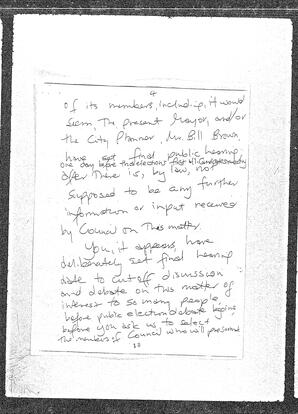 4
of its members, including, it would
seem, The present Mayor, and/or
the City Planner, Mr. Bill Brown,
have set final public hearing
one day before the elections
After There is, by law, not
supposed to be any further
information or input received
by Council on This matter.
You, it appears, have
deliberately set final hearing
date to cut off discussion
and debate on this matter of
interest to so many people,
before public election debate begins,
before you ask us to select
The members of Council who will